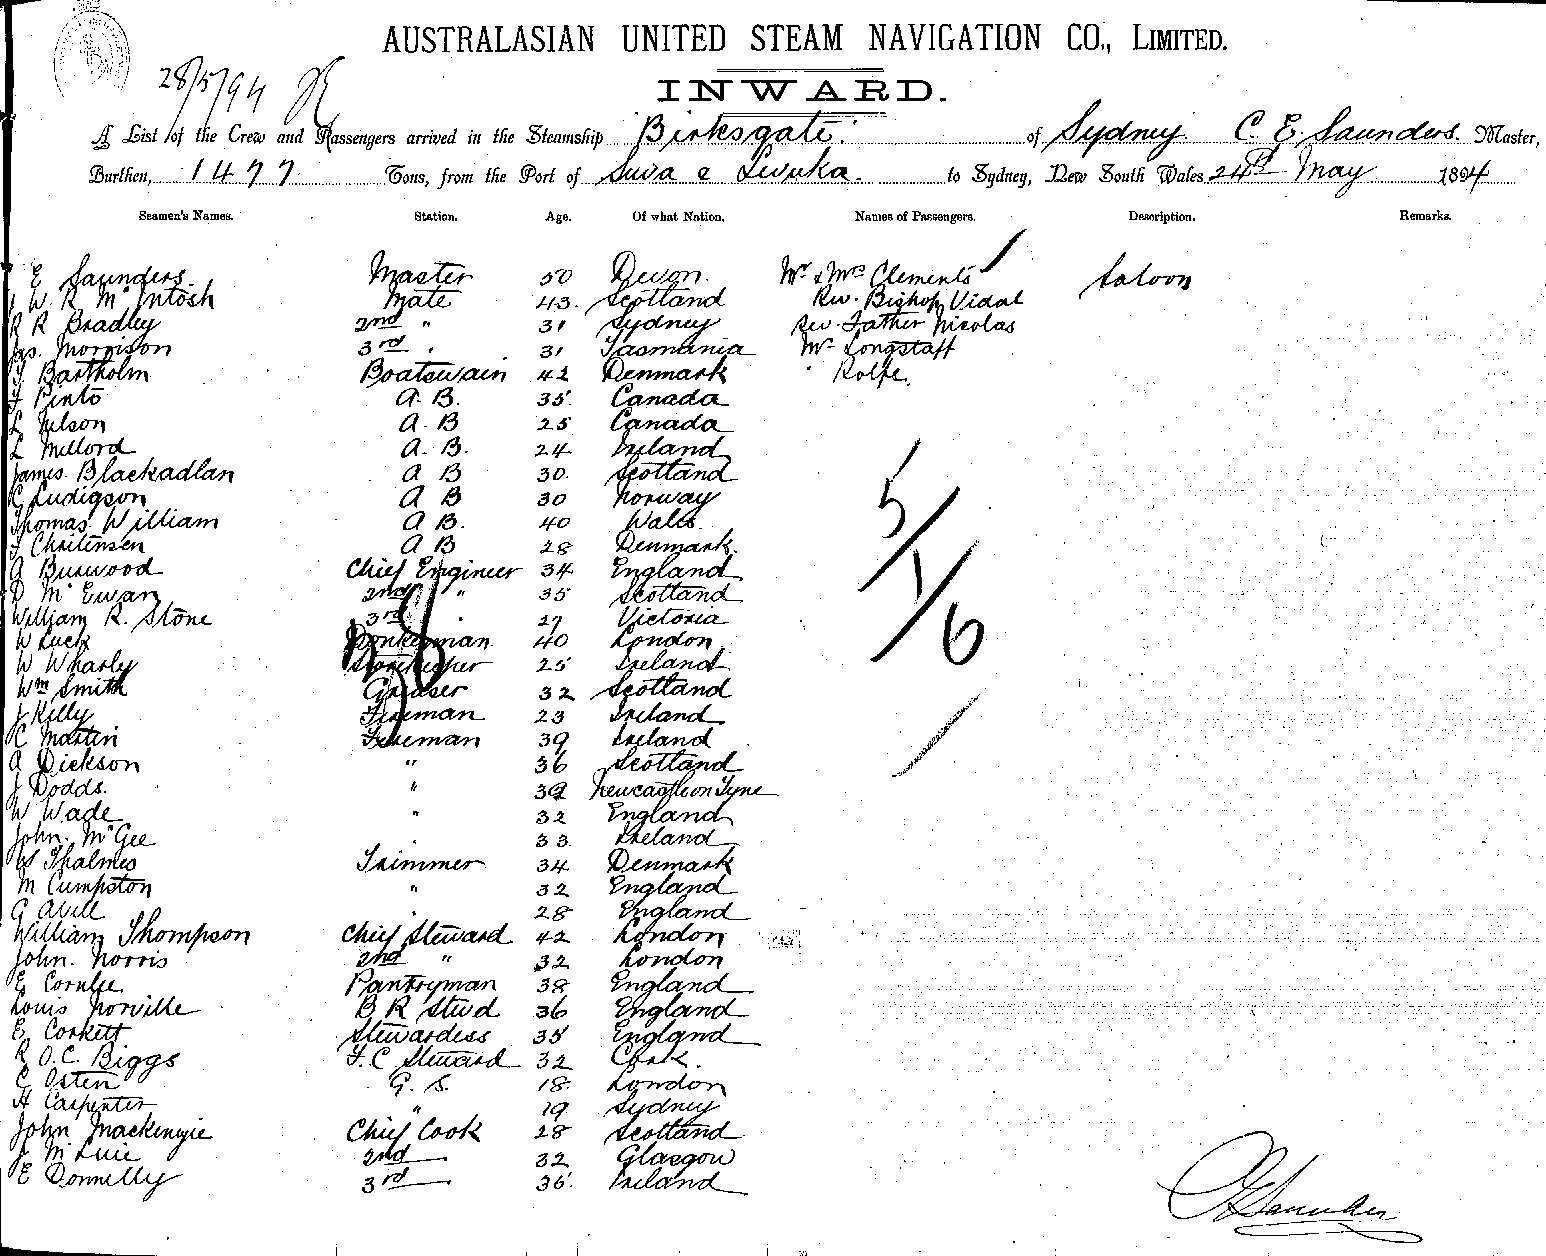 AUSTRALASIAN UNITED STEAM NAVIGATION CO., LIMITED.
28/5/94
INWARD.
A List of the Crew and Passengers arrived in the Steamship Birksgate. of Sydney C. E. Saunders. Master,
Burthen, 1477 Tons, from the Port of Suva & Levuka. to Sydney, New South Wales 24th May 1894
Seamen's Names. Station. Age. Of what Nation. Names of Passengers. Description. Remarks.
E Saunders Master 50 Devon. Mr & Mrs Clements Saloon
W. R McIntosh Mate 43. Scotland Rev. Bishop Vidal
R R Bradley 2nd " 31 Sydney Rev. Father Nicolas
Jas. Morrison 3rd " 31 Tasmania Mr Longstaff
Bartholm Boatswain 42 Denmark " Rolfe.
F Pinto A. B. 35. Canada
L Nelson A. B 25 Canada
L Mellord A. B. 24 Ireland
James. Blackadlan A B 30. Scotland
C Ludigson A B 30 Norway
Thomas William A B. 40 Wales.
J Christensen A B 28 Denmark.
A Burwood Chief Engineer 34 England
D McEwan 2nd " 35 Scotland
William R. Stone 3rd 27 Victoria
W Luck Donkeyman 40 London
W Wharly Storekeeper 25 Ireland
Wm Smith Greaser 32 Scotland
J Kelly Fireman 23 Ireland
C Martin Fireman 39 Ireland
A Dickson " 36 Scotland
J Dodds. " 39 Newcastle on Tyne
W Wade " 32 England
John. McGee 33 Ireland
Thalmes Trimmer 34 Denmark
M Cumpston " 32 England
G Avill 28 England
William Thompson Chief Steward 42 London
John. Norris 2nd " 32 London
E Cornlie Pantryman 38 England
Louis Norville B R Stwd 36 England
E Corkett Stewardess 35 England
R O. C. Biggs F. C Steward 32 Cork.
C Osten G. S. 18. London
H Carpenter " 19 Sydney
John Mackenzie Chief Cook 28 Scotland
J McLuie 2nd 32 Glasgow
E Donnelly 3rd 36. Ireland
5/1/6
C E Saunders